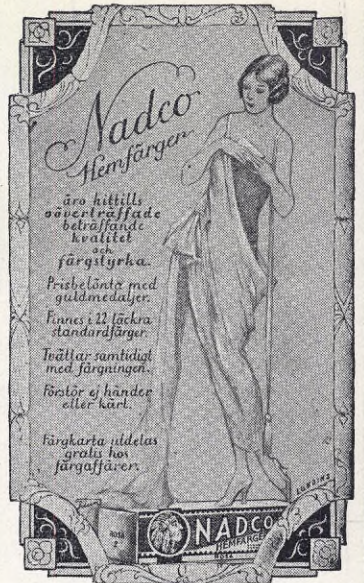 Nadco
Hemfärger
äro hittills
oöverträffade
beträffande
kvalitet
och
färgstyrka.
Prisbelönta med
guldmedaljer.
Finnes i 22 läckra
standardfärger.
Tvättar samtidigt
med färgningen.
Förstör ej händer
eller kärl.
Färgkarta utdelas
gratis hos
färgaffärer.
ROSA
2
NADCO
HEMFÄRGER
ROSA